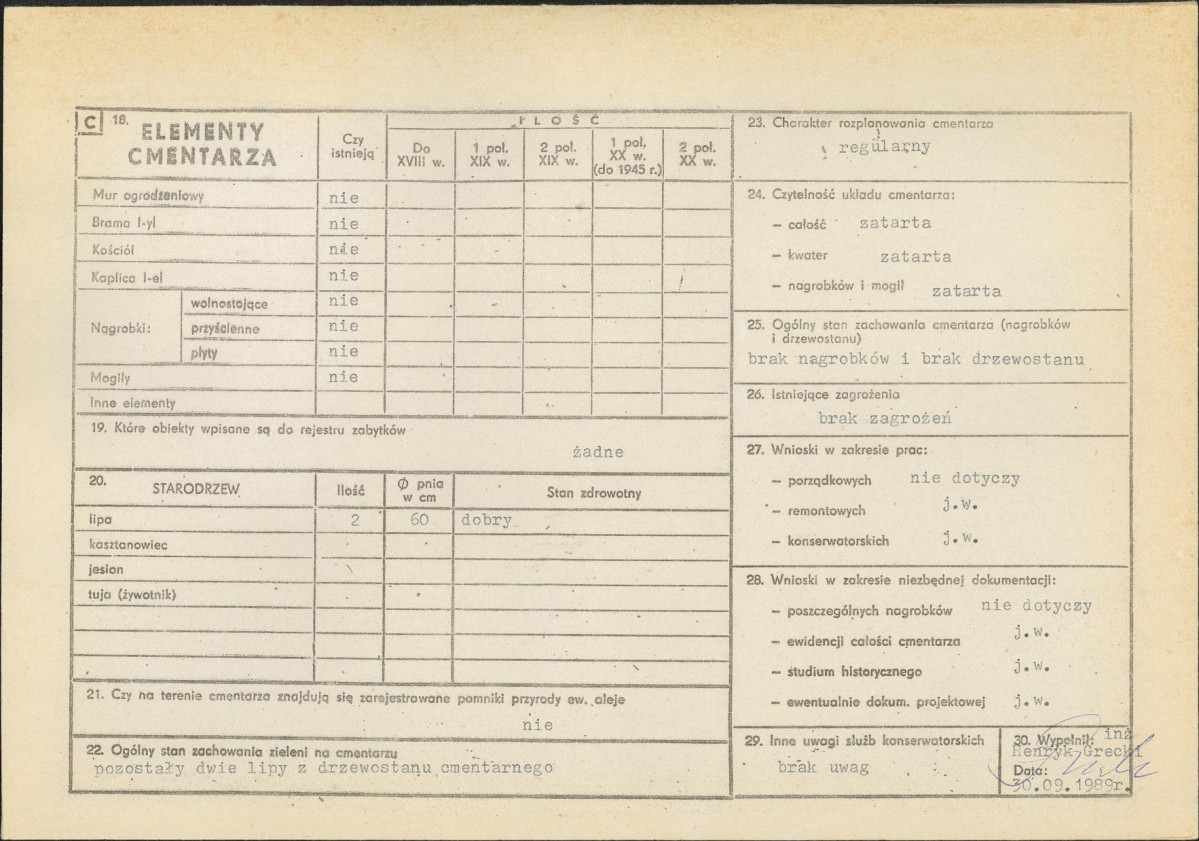 C 18. ELEMENTY CMENTARZA
Czy istnieją
IŁOŚĆ
Do XVIII w.
1 poł. XIX w.
2 poł. XIX w.
1 poł. XX w. (do 1945 r.)
2 poł. XX w.
Mur ogrodzeniowy nie
Brama I-yl nie
Kościół nie
Kaplica I-el nie
Nagrobki:
wolnostojące nie
przyścienne nie
płyty nie
Mogiły nie
Inne elementy
19. Które obiekty wpisane są do rejestru zabytków
żadne
20. STARODRZEW Ilość Ø pnia w cm Stan zdrowotny
lipa 2 60 dobry
kasztanowiec
jesion
tuja (żywotnik)
21. Czy na terenie cmentarza znajdują się zarejestrowane pomniki przyrody ew. aleje
nie
22. Ogólny stan zachowania zieleni na cmentarzu
pozostały dwie lipy z drzewostanu cmentarnego
23. Charakter rozplanowania cmentarza
regularny
24. Czytelność układu cmentarza:
– całość zatarta
– kwater zatarta
– nagrobków i mogił zatarta
25. Ogólny stan zachowania cmentarza (nagrobków
i drzewostanu)
brak nagrobków i brak drzewostanu
26. Istniejące zagrożenia
brak zagrożeń
27. Wnioski w zakresie prac:
– porządkowych nie dotyczy
– remontowych j.w.
– konserwatorskich j.w.
28. Wnioski w zakresie niezbędnej dokumentacji:
– poszczególnych nagrobków nie dotyczy
– ewidencji całości cmentarza j.w.
– studium historycznego j.w.
– ewentualnie dokum. projektowej j.w.
29. Inne uwagi służb konserwatorskich
brak uwag
30. Wypełnił: inż
Henryk Grecki
Data:
30.09.1989r.